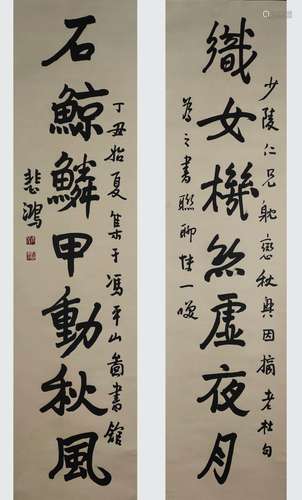 織女機絲虛夜月
少陵仁兄躭戀秋興因摘老杜句
為之書聯聊博一噱
石鯨鱗甲動秋風
丁丑始夏集于馮平山圖書館
悲鴻